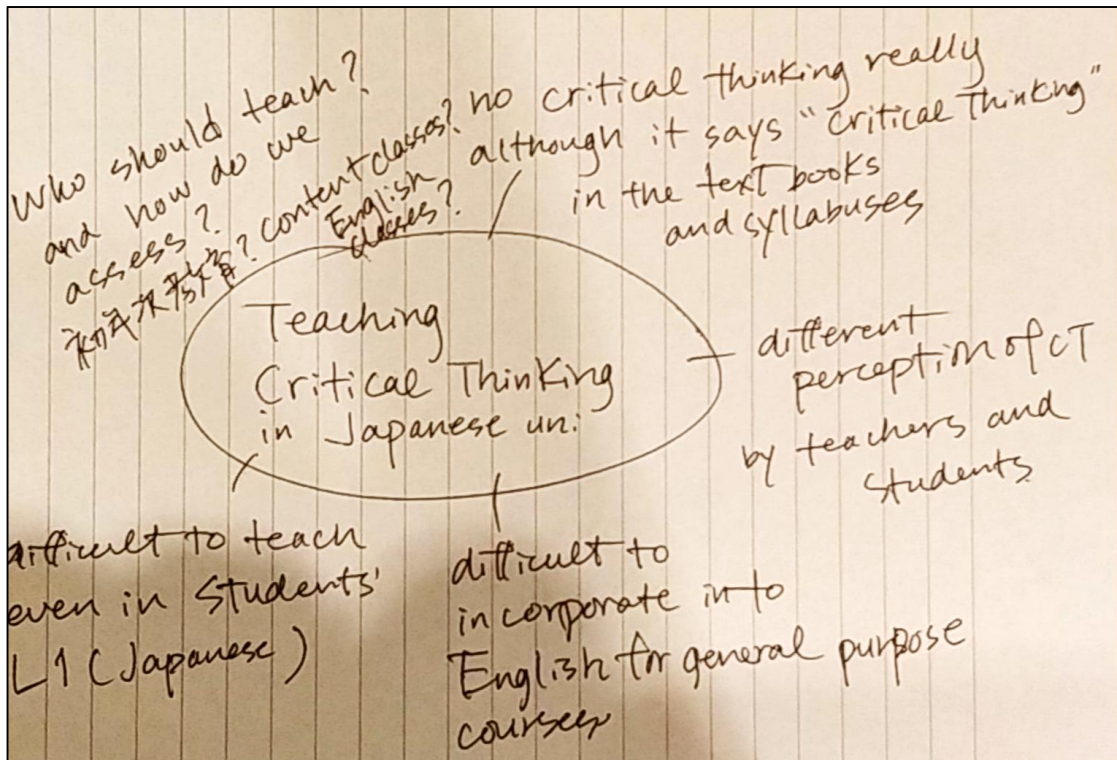 Who should teach?
and how do we
assess?
初年次教育? content classes?
English
classes?
no critical thinking really
although it says "Critical Thinking"
in the text books
and syllabuses
Teaching
Critical Thinking
in Japanese uni
different
perception of CT
by teachers and
students
difficult to teach
even in Students'
L1 (Japanese)
difficult to
incorporate into
English for general purpose
courses